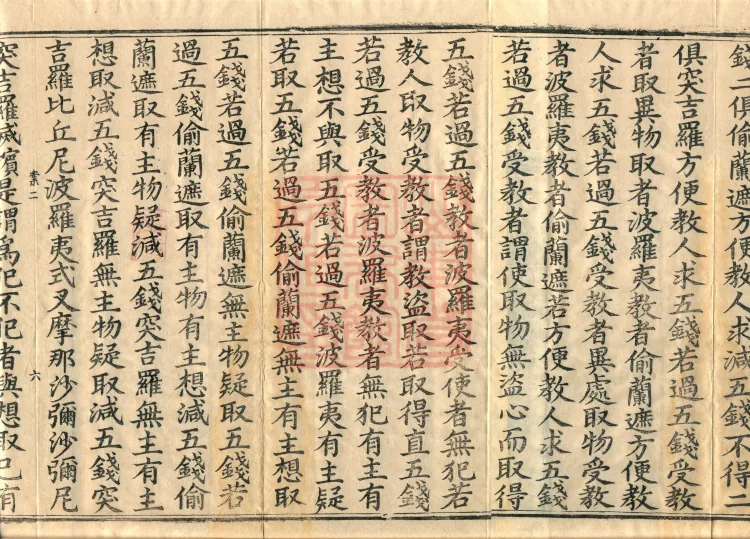 錢二俱偷蘭遮方便教人求減五錢不得二
俱突吉羅方便教人求五錢若過五錢受教
者取異物取者波羅夷教者偷蘭遮方便教
人求五錢若過五錢受教者異處取物受教
者波羅夷教者偷蘭遮若方便教人求五錢
若過五錢受教者謂使取物無盜心而取得
五錢若過五錢教者波羅夷受使者無犯若
教人取物受教者謂教盜取若取得直五錢
若過五錢受教者波羅夷教者無犯有主有
主想不與取五錢若過五錢波羅夷有主疑
若取五錢若過五錢偷蘭遮無主有主想取
五錢若過五錢偷蘭遮無主物疑取五錢若
過五錢偷蘭遮取有主物有主想減五錢偷
蘭遮取有主物疑減五錢突吉羅無主有主
想取減五錢突吉羅無主物疑取減五錢突
吉羅比丘尼波羅夷式叉摩那沙彌沙彌尼
六
突吉羅滅擯是謂為犯不犯者與想取已有